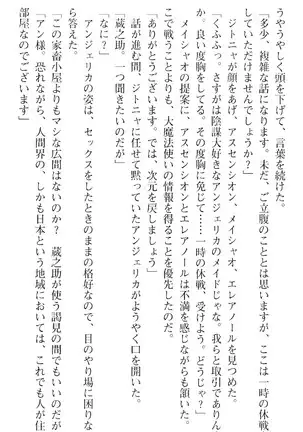 うやうやしく頭を下げて、言葉を続けた。
「多少、複雑な話になります。まだ、ご立腹のこととは思いますが、ここは一時の休戦、
していただけませんでしょうか？」
ジトニャが顔をあげ、アスセンシオン、メイシャオ、エレアノールを見つめた。
「くふふっ。さすがは陰謀大好きなアンジェリカのメイドじゃな。我らと取引でありん
か。良い度胸をしてる。その度胸に免じて……一時の休戦、受けよう。どうじゃ？」
メイシャオの提案に、アスセンシオンとエレアノールは不満を感じながらも頷いた。
ここで戦うことよりも、大魔法使いの情報を得ることを優先したのだ。
「ありがとうございます。では、次元を戻しましょう」
話が進む間、ジトニャに任せて黙っていたアンジェリカがようやく口を開いた。
「蔵之助。一つ聞きたいのだが」
「なに？」
アンジェリカの姿は、セックスをしたときのままの格好なので、目のやり場に困りな
がら答えた。
「この家畜小屋よりもマシな広間はないのか？　蔵之助が使う謁見の間でもいいのだが」
「アン様。恐れながら、人間界の、しかも日本という地域においては、これでも人が住む
部屋なのでございます」